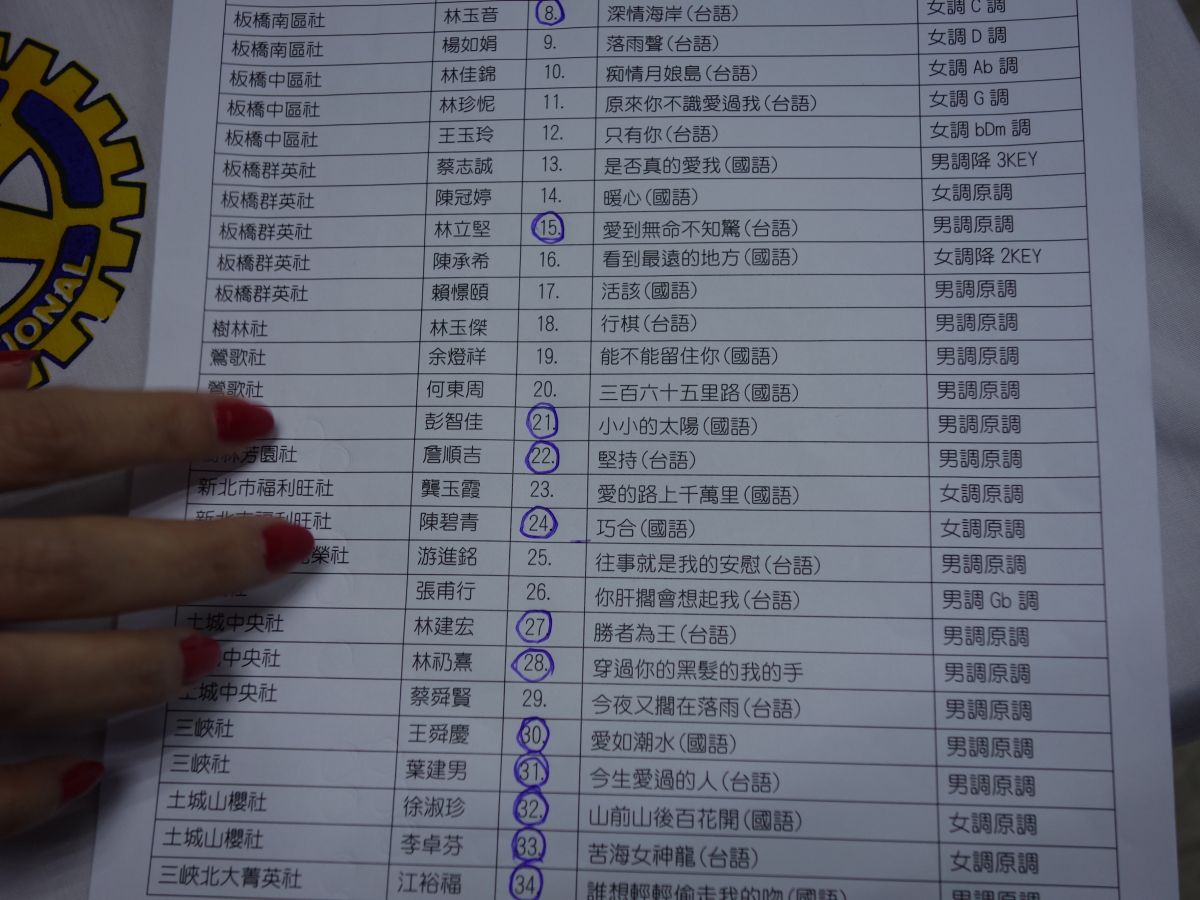 板橋南區社 林玉音 8. 深情海岸(台語) 女調 C 調
板橋南區社 楊如娟 9. 落雨聲(台語) 女調 D 調
板橋中區社 林佳錦 10. 痴情月娘島(台語) 女調 Ab 調
板橋中區社 林珍怩 11. 原來你不識愛過我(台語) 女調 G 調
板橋中區社 王玉玲 12. 只有你(台語) 女調 bDm 調
板橋群英社 蔡志誠 13. 是否真的愛我(國語) 男調降 3KEY
板橋群英社 陳冠婷 14. 暖心(國語) 女調原調
板橋群英社 林立堅 15. 愛到無命不知驚(台語) 男調原調
板橋群英社 陳承希 16. 看到最遠的地方(國語) 女調降 2KEY
板橋群英社 賴憬頤 17. 活該(國語) 男調原調
樹林社 林玉傑 18. 行棋(台語) 男調原調
鶯歌社 余燈祥 19. 能不能留住你(國語) 男調原調
鶯歌社 何東周 20. 三百六十五里路(國語) 男調原調
彭智佳 21. 小小的太陽(國語) 男調原調
樹林芳園社 詹順吉 22. 堅持(台語) 男調原調
新北市福利旺社 龔玉霞 23. 愛的路上千萬里(國語) 女調原調
新北市福利旺社 陳碧青 24. 巧合(國語) 女調原調
榮社 游進銘 25. 往事就是我的安慰(台語) 男調原調
張甫行 26. 你肝擱會想起我(台語) 男調 Gb 調
土城中央社 林建宏 27 勝者為王(台語) 男調原調
中央社 林礽熹 28. 穿過你的黑髮的我的手 男調原調
土城中央社 蔡舜賢 29. 今夜又擱在落雨(台語) 男調原調
三峽社 王舜慶 30. 愛如潮水(國語) 男調原調
三峽社 葉建男 31. 今生愛過的人(台語) 男調原調
土城山櫻社 徐淑珍 32. 山前山後百花開(國語) 女調原調
土城山櫻社 李卓芬 33. 苦海女神龍(台語) 女調原調
三峽北大菁英社 江裕福 34 誰想輕輕偷走我的吻(國語) 男調原調
IONAL